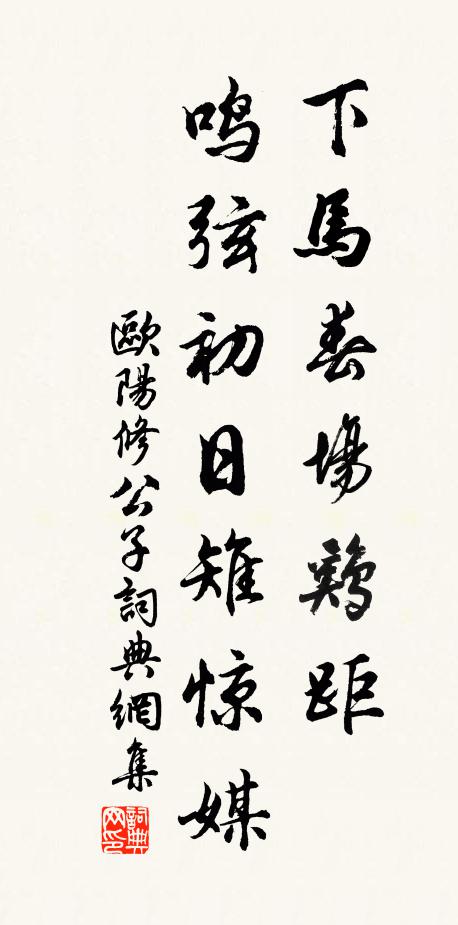 下馬春場鷄距
鸣弦初日雉惊媒
歐陽修公子詞典網集
詞典
网印